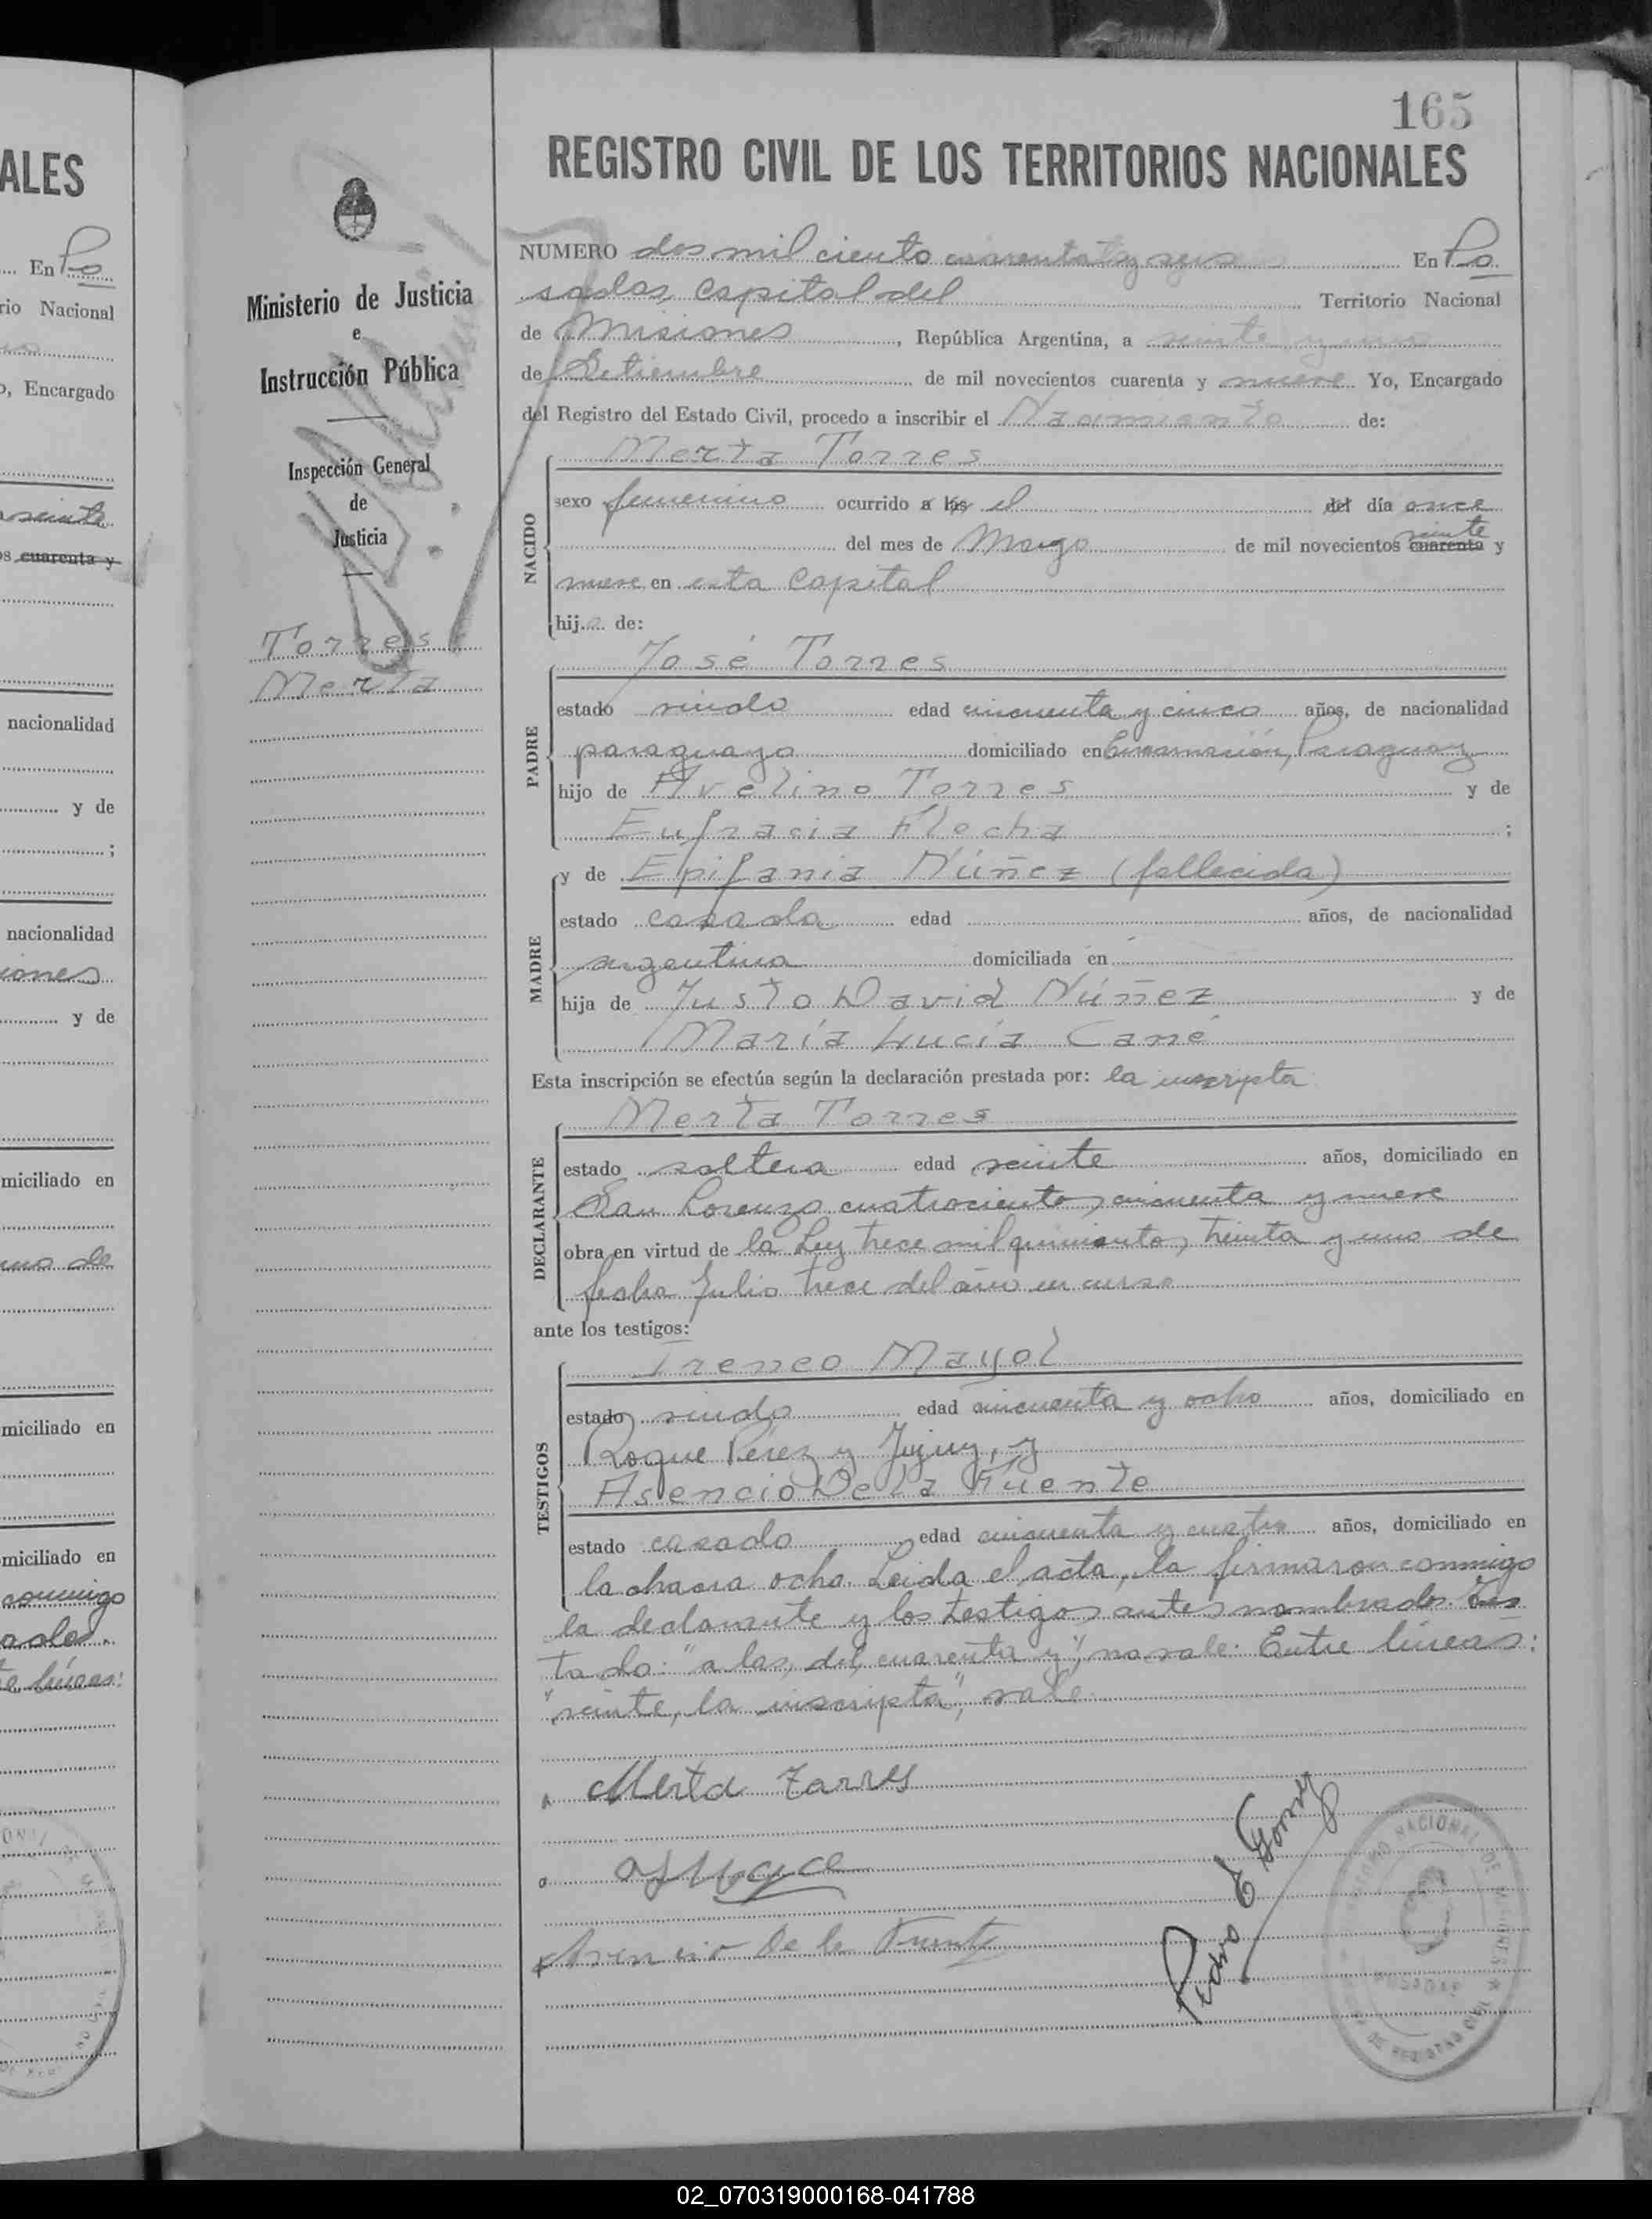 165
ALES
REGISTRO CIVIL DE LOS TERRITORIOS NACIONALES
Ministerio de Justicia
e
Instrucción Pública
Inspección General
de
Justicia
Torres
Merta
NUMERO dos mil ciento cuarenta y seis En Po
sadas, Capital del Territorio Nacional
de Misiones, República Argentina, a veinte y uno
de Setiembre de mil novecientos cuarenta y nueve Yo, Encargado
del Registro del Estado Civil, procedo a inscribir el Nacimiento de:
Merta Torres
NACIDO
sexo femenino ocurrido a las el del día once
del mes de Marzo de mil novecientos cuarenta veinte y
nueve en esta Capital
hija de:
José Torres
PADRE
estado viudo edad cincuenta y cinco años, de nacionalidad
paraguaya domiciliado en Encarnación, Paraguay
hijo de Avelino Torres y de
Eufracia Flecha ;
y de Epifania Núñez (fallecida)
MADRE
estado casada edad años, de nacionalidad
argentina domiciliada en
hija de Justo David Núñez y de
María Lucía Cané
Esta inscripción se efectúa según la declaración prestada por: la inscripta
Merta Torres
DECLARANTE
estado soltera edad veinte años, domiciliado en
San Lorenzo cuatrocientos cincuenta y nueve
obra en virtud de la Ley trece mil quinientos treinta y uno de
fecha Julio trece del año en curso
ante los testigos:
Ireneo Mayol
TESTIGOS
estado viudo edad cincuenta y ocho años, domiciliado en
Roque Pérez y Jujuy, y
Asencio De la Fuente
estado casado edad cincuenta y cuatro años, domiciliado en
la chacra ocho. Leida el acta, la firmaron conmigo
la declarante y los testigos antes nombrados. Tes
tado: "a las, del, cuarenta y", no vale. Entre líneas:
"veinte, la inscripta", vale.
Merta Torres
Asencio De la Fuente
Pedro E Gomez
02_070319000168-041788